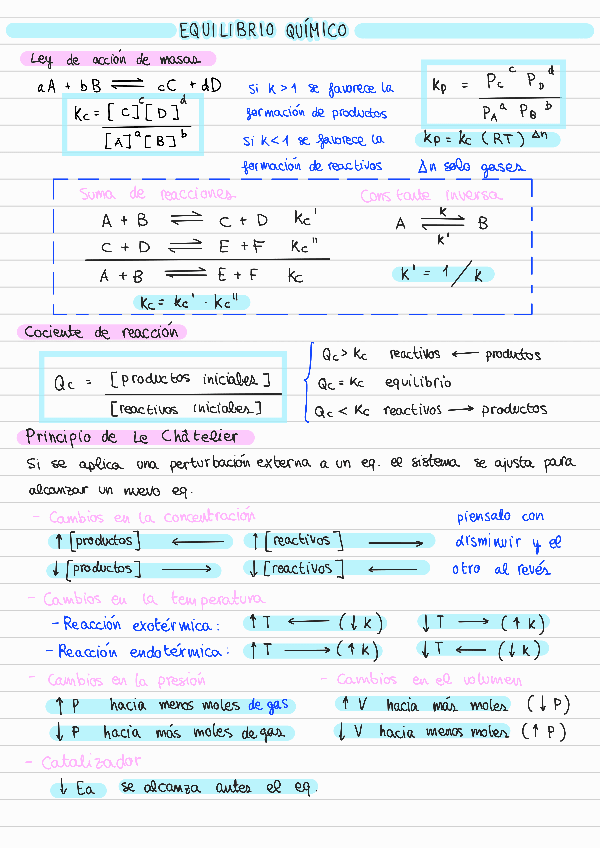 EQUILIBRIO QUÍMICO
Ley de acción de masas
aA + bB ⇌ cC + dD
Kc = [C]^c [D]^d / [A]^a [B]^b
Si K > 1 se favorece la
formación de productos
Si K < 1 se favorece la
formación de reactivos
Kp = P_C^c P_D^d / P_A^a P_B^b
Kp = Kc (RT)^Δn
Δn solo gases
Suma de reacciones
A + B ⇌ C + D Kc'
C + D ⇌ E + F Kc''
A + B ⇌ E + F Kc
Kc = Kc' · Kc''
Constante inversa
A ⇌ B
K
K'
K' = 1 / K
Cociente de reacción
Qc = [productos iniciales] / [reactivos iniciales]
Qc > Kc reactivos ← productos
Qc = Kc equilibrio
Qc < Kc reactivos → productos
Principio de Le Châtelier
Si se aplica una perturbación externa a un eq. el sistema se ajusta para
alcanzar un nuevo eq.
- Cambios en la concentración
↑ [productos] ← ↑ [reactivos] →
↓ [productos] → ↓ [reactivos] ←
piensalo con
disminuir y el
otro al revés
- Cambios en la temperatura
- Reacción exotérmica: ↑ T ← (↓ K) ↓ T → (↑ K)
- Reacción endotérmica: ↑ T → (↑ K) ↓ T ← (↓ K)
- Cambios en la presión
↑ P hacia menos moles de gas
↓ P hacia más moles de gas
- Cambios en el volumen
↑ V hacia más moles (↓ P)
↓ V hacia menos moles (↑ P)
- Catalizador
↓ Ea se alcanza antes el eq.